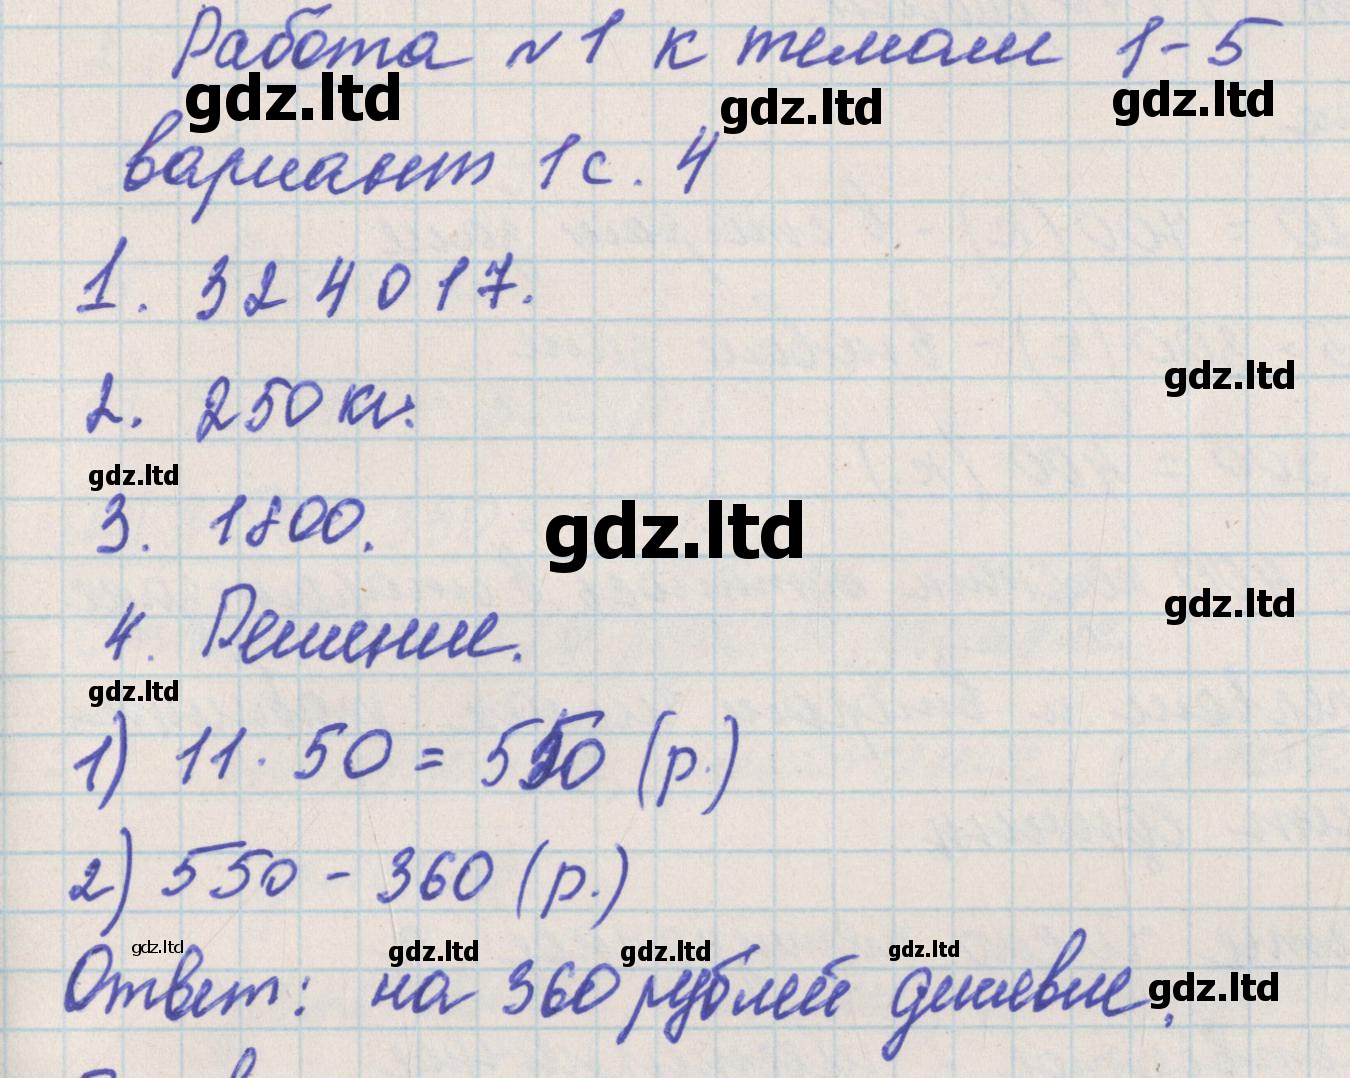 Работа №1 к темам 1-5
gdz.ltd gdz.ltd gdz.ltd
вариант 1 с. 4
1. 324017.
2. 250 кг.
gdz.ltd
gdz.ltd
3. 1800.
gdz.ltd
gdz.ltd
4. Решение.
gdz.ltd
1) 11·50=550 (р.)
2) 550-360 (р.)
gdz.ltd gdz.ltd gdz.ltd gdz.ltd
Ответ: на 360 рублей дешевле.
gdz.ltd